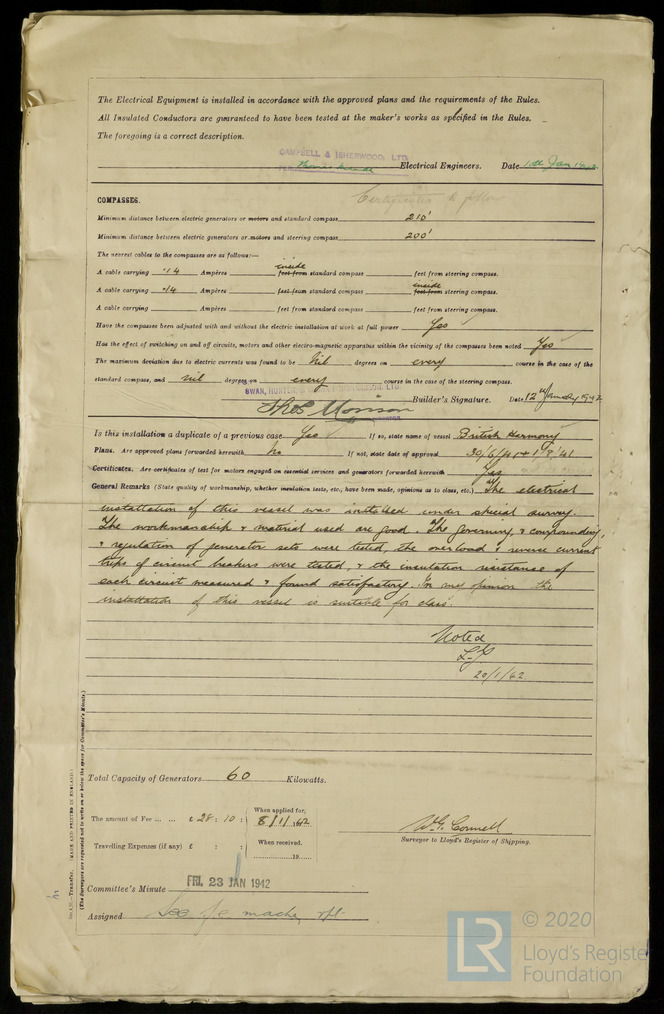 The Electrical Equipment is installed in accordance with the approved plans and the requirements of the Rules.
All Insulated Conductors are guaranteed to have been tested at the maker's works as specified in the Rules.
The foregoing is a correct description.
CAMPBELL & ISHERWOOD, LTD.
Electrical Engineers. Date 10th Jan 1942
COMPASSES. Certificates to follow
Minimum distance between electric generators or motors and standard compass 210'
Minimum distance between electric generators or motors and steering compass 200'
The nearest cables to the compasses are as follows:—
A cable carrying .14 Ampères inside feet from standard compass feet from steering compass.
A cable carrying .14 Ampères feet from standard compass inside feet from steering compass.
A cable carrying Ampères feet from standard compass feet from steering compass.
Have the compasses been adjusted with and without the electric installation at work at full power Yes
Has the effect of switching on and off circuits, motors and other electro-magnetic apparatus within the vicinity of the compasses been noted Yes
The maximum deviation due to electric currents was found to be Nil degrees on every course in the case of the
standard compass, and nil degrees on every course in the case of the steering compass.
SWAN, HUNTER LTD.
Thos Morison Builder's Signature. Date 12th January 1942
Is this installation a duplicate of a previous case Yes If so, state name of vessel British Harmony
Plans. Are approved plans forwarded herewith No If not, state date of approval 30/6/41 + 1/8/41
Certificates. Are certificates of test for motors engaged on essential services and generators forwarded herewith Yes
General Remarks (State quality of workmanship, whether insulation tests, etc., have been made, opinions as to class, etc.) The electrical
installation of this vessel was installed under special survey.
The workmanship & material used are good. The governing, & compounding,
& regulation of generator sets were tested, the overload & reverse current
trips of circuit breakers were tested, & the insulation resistance of
each circuit measured & found satisfactory. In my opinion the
installation of this vessel is suitable for class.
Noted
20/1/42
Total Capacity of Generators 60 Kilowatts.
The amount of Fee ... ... £ 28 : 10 : When applied for, 8/1/42
Travelling Expenses (if any) £ : : When received, 19
W.G. Connell
Surveyor to Lloyd's Register of Shipping.
Committee's Minute FRI. 23 JAN 1942
Assigned See mache rpt.
(The Surveyors are requested not to write on or below the space for Committee's Minute.)
Transfer. (MADE AND PRINTED IN ENGLAND.)
LR © 2020
Lloyd's Register
Foundation